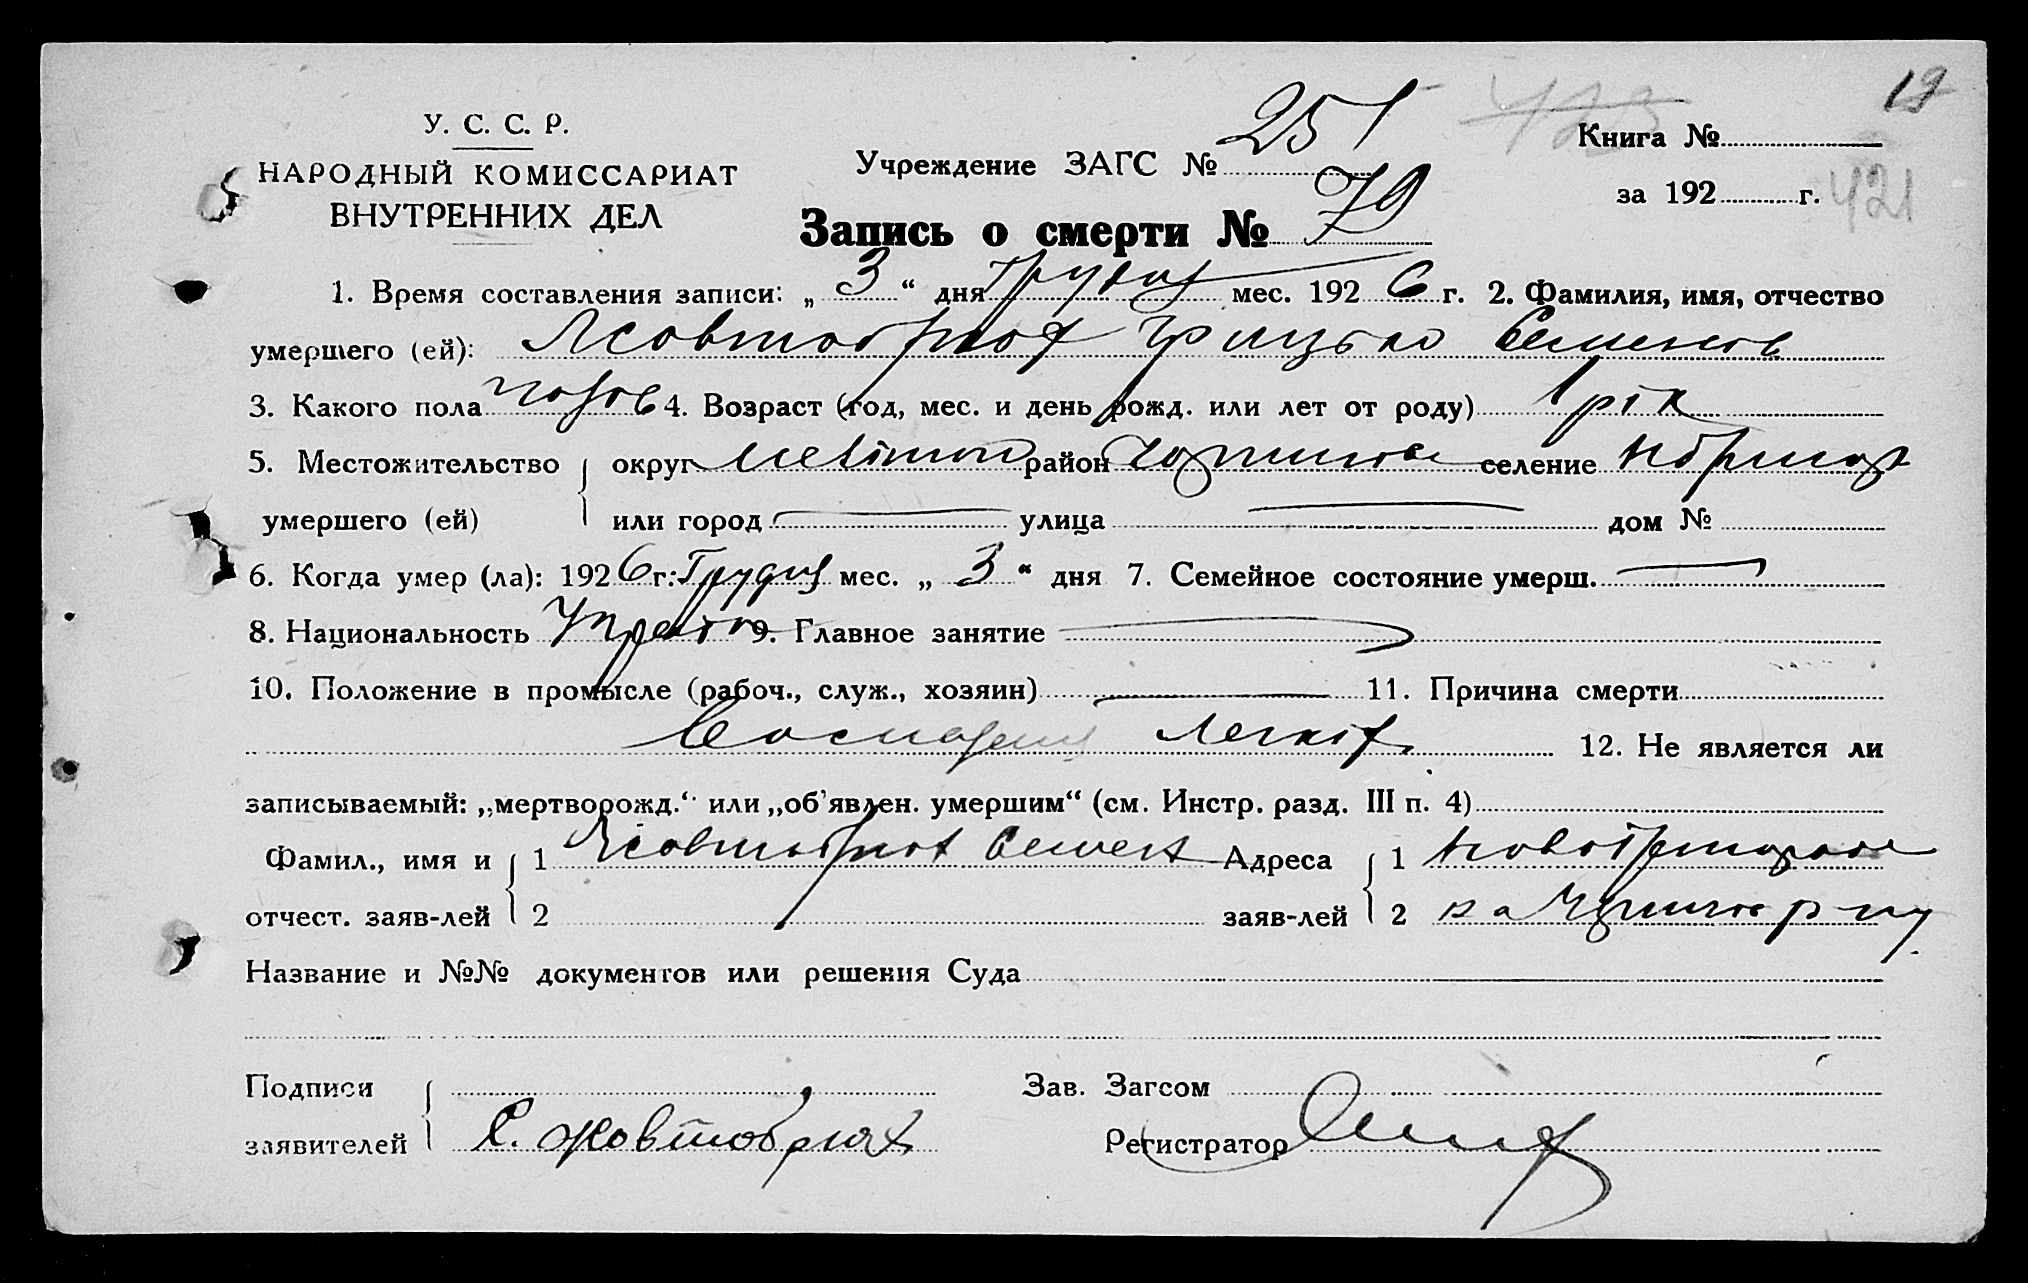 19
У. С. С. Р.
НАРОДНЫЙ КОМИССАРИАТ
ВНУТРЕННИХ ДЕЛ
Учреждение ЗАГС № 251
423
Книга №
за 192 г. 421
Запись о смерти № 79
1. Время составления записи: „ 3 “ дня Грудня мес. 192 6 г. 2. Фамилия, имя, отчество
умершего (ей): Жовтобрюх Грицько Семенов
3. Какого пола чолов 4. Возраст (год, мес. и день рожд. или лет от роду) 1 рік
5. Местожительство округ район селение
умершего (ей) или город улица дом №
6. Когда умер (ла): 192 6 г: Грудня мес. „ 3 “ дня 7. Семейное состояние умерш.
8. Национальность 9. Главное занятие
10. Положение в промысле (рабоч., служ., хозяин) 11. Причина смерти
легких 12. Не является ли
записываемый: „мертворожд.“ или „об'явлен. умершим“ (см. Инстр. разд. III п. 4)
Фамил., имя и 1 Жовтобрюх Семен Адреса 1
отчест. заяв-лей 2 заяв-лей 2
Название и №№ документов или решения Суда
Подписи Зав. Загсом
заявителей С. Жовтобрюх Регистратор